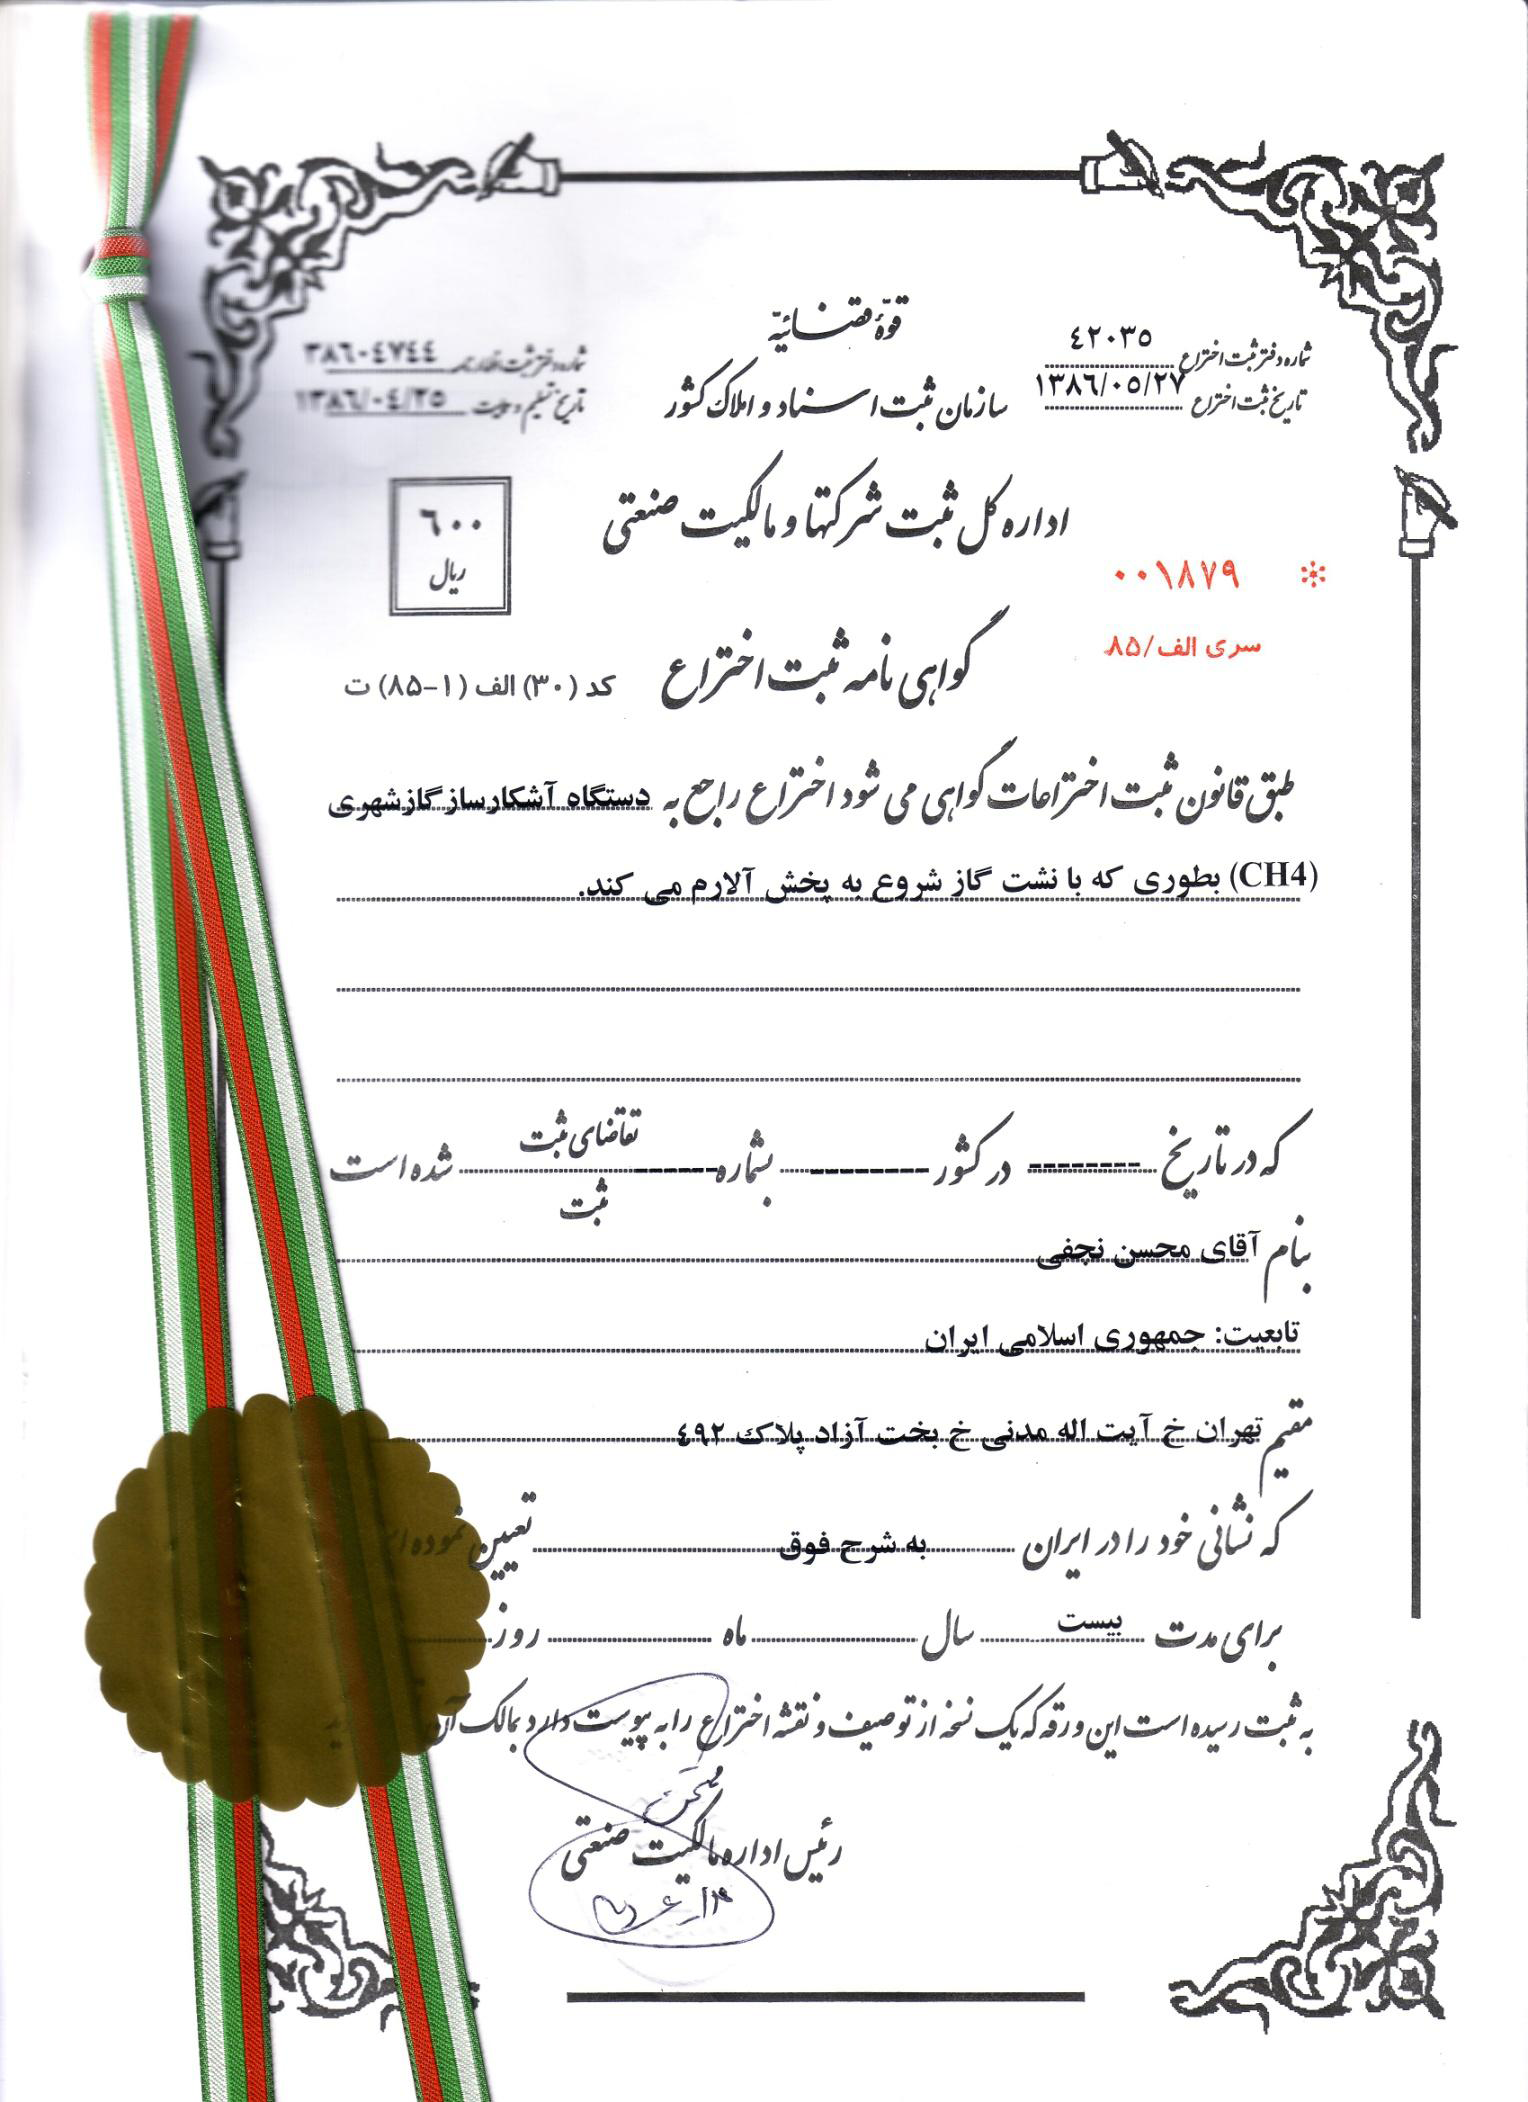 قوّهٔ قضائیّه
سازمان ثبت اسناد و املاک کشور
شماره دفتر ثبت اختراع ٤٢٠٣٥
تاریخ ثبت اختراع ١٣٨٦/٠٥/٢٧
شماره دفتر ثبت اظهارنامه ٣٨٦٠٤٧٤٤
تاریخ تسلیم و رویت ١٣٨٦/٠٤/٢٥
اداره کل ثبت شرکتها و مالکیت صنعتی
٦٠٠
ریال
٠٠١٨٧٩ *
سری الف/٨۵
گواهی نامه ثبت اختراع
کد (٣٠) الف (١-٨۵) ت
طبق قانون ثبت اختراعات گواهی می شود اختراع راجع به دستگاه آشکارساز گازشهری
(CH4) بطوری که با نشت گاز شروع به پخش آلارم می کند.
که در تاریخ -------- در کشور -------- بشماره ------ تقاضای ثبت شده است
ثبت
بنام آقای محسن نجفی
تابعیت: جمهوری اسلامی ایران
مقیم تهران خ آیت اله مدنی خ بخت آزاد پلاک ٤٩٢
که نشانی خود را در ایران به شرح فوق تعیین نموده
برای مدت بیست سال ماه روز
به ثبت رسیده است این ورقه که یک نسخه از توصیف و نقشه اختراع را به پیوست دارد بمالک آن
رئیس اداره مالکیت صنعتی